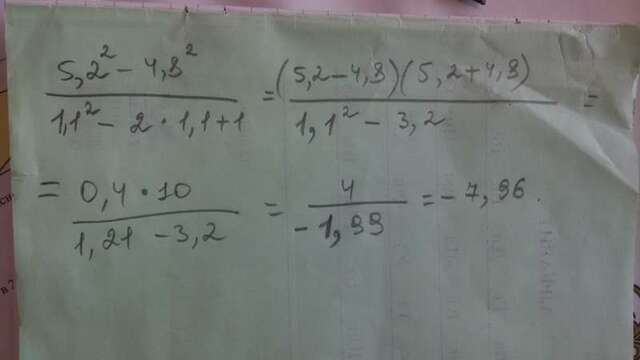 5,2² - 4,8² / 1,1² - 2 · 1,1 + 1 = (5,2 - 4,8)(5,2 + 4,8) / 1,1² - 3,2 =
= 0,4 · 10 / 1,21 - 3,2 = 4 / -1,99 = -7,96.